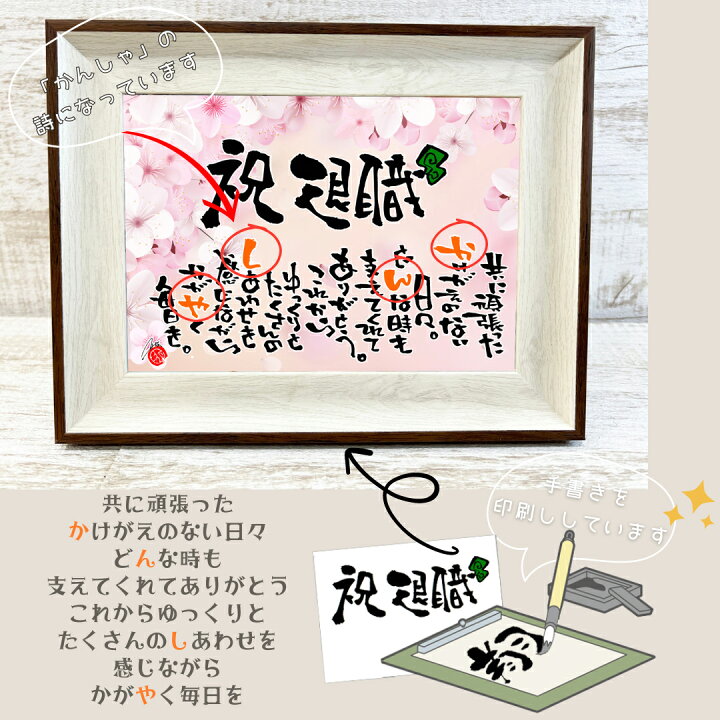 「かんしゃ」の
詩になっています
祝退職
共に頑張った
かけがえのない
日々。
どんな時も
支えてくれて
ありがとう。
これから
ゆっくりと
たくさんの
しあわせを
感じながら
かがやく
毎日を。
共に頑張った
かけがえのない日々
どんな時も
支えてくれてありがとう
これからゆっくりと
たくさんのしあわせを
感じながら
かがやく毎日を
手書きを
印刷ししています
祝退職